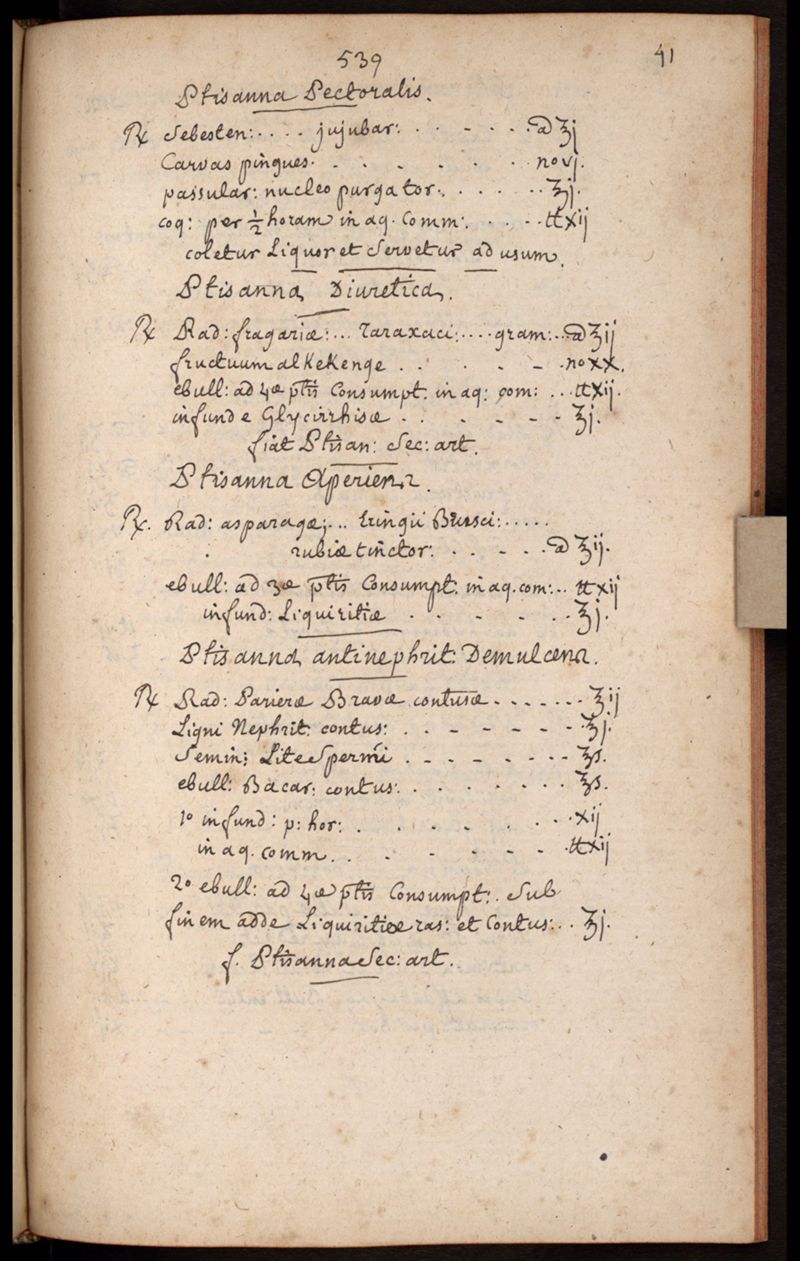 539
41
Ptisanna Pectoralis.
℞ Sebesten:.... jujubar: . . - . . . ā ℥j
Carvas pingues. . . . . . . . no vj.
passular: nucleo purgator:. . . . . . . ℥j.
coq: per ½ horam in aq. Comm:. . . . . ℔xij
coletur Liquor et Servetur ad usum.
Ptisanna Diuretica.
℞ Rad: fragariæ:... Taraxaci:.... gram:.. ā ℥ij
fructuum alKeKenge . . . . - - . no xx.
ebull: ad 4æ ptis Consumpt: in aq: com: ... ℔xij.
infund e Glycirrhisæ . . . - - - - ℥j.
fiat Ptisan: Sec: art.
Ptisanna Aperiens.
℞. Rad: asparagæ;... Eringii Brusci:.....
rubiæ tinctor:. . . - - . . ā ℥ij.
ebull: ad 3æ ptis Consumpt: in aq. com:.. ℔xij
infund: Liquiritiæ . . - - - . . ℥j.
Ptisanna antinephrit: Demulcens.
℞ Rad: Parieræ Bravæ contusæ - - - - . . . ℥ij
Ligni Nephrit: contus: . . - - - - - - ℥j.
Semin: LiteSpermi . - - - - - - - ℥s.
ebull: Bacar: contus:. . . . . . . . ℥s.
1o infund: p: hor: . . . . - . . - . . xij
in aq. comm. . . - - - - - . ℔xij
2o ebull: ad 4æ ptis Consumpt:. Sub
finem adde Liquiritiæ ras: et Contus:... ℥j.
f. Ptisanna Sec: art.